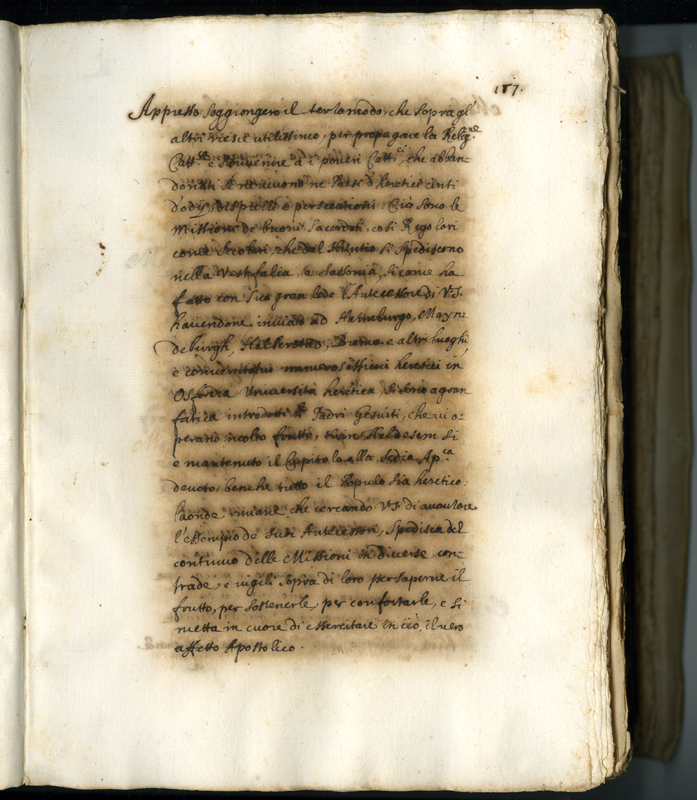 187.
Appresso soggiongerò il terzo modo, che sopra gl'
altri riesce utilissimo, per propagare la Relig.ne
Catt.ca e sovvenire à i poveri Catt.ci, che abban-
donati se ne vivono ne Paesi d'heretici cinti
d'odij, dispetti e persecutioni: Ciò sono le
Missioni de buoni Sacerdoti, così Regolari
come secolari, che dal Nuntio si spediscono
nella Vestfalia, e Sassonia, sicome ha
fatto con sua gran lode l'Antecessore di V.S.
havendone inviati ad Hamburgo, Mayn-
deburgh, Halberstad, Brema e altri luoghi,
e conventutis numerosissimi heretici in
Università heretica, si sono a gran
fatica introdotti li Padri Gesuiti, che vi o-
perano molto frutto, Hildesem si
e mantenuto il Capitolo alla Sedia Ap.ca
devoto, benche tutto il Populo sia heretico:
laonde che cercando V.S. di
l'essempio de suoi Antecessori, spedisca del
continuo delle Missioni in diverse con-
trade, e vigili sopra di loro per saperne il
frutto, per sostenerle, per confortarle, e si
metta in cuore di essercitare in ciò il vero
affetto Apostolico.